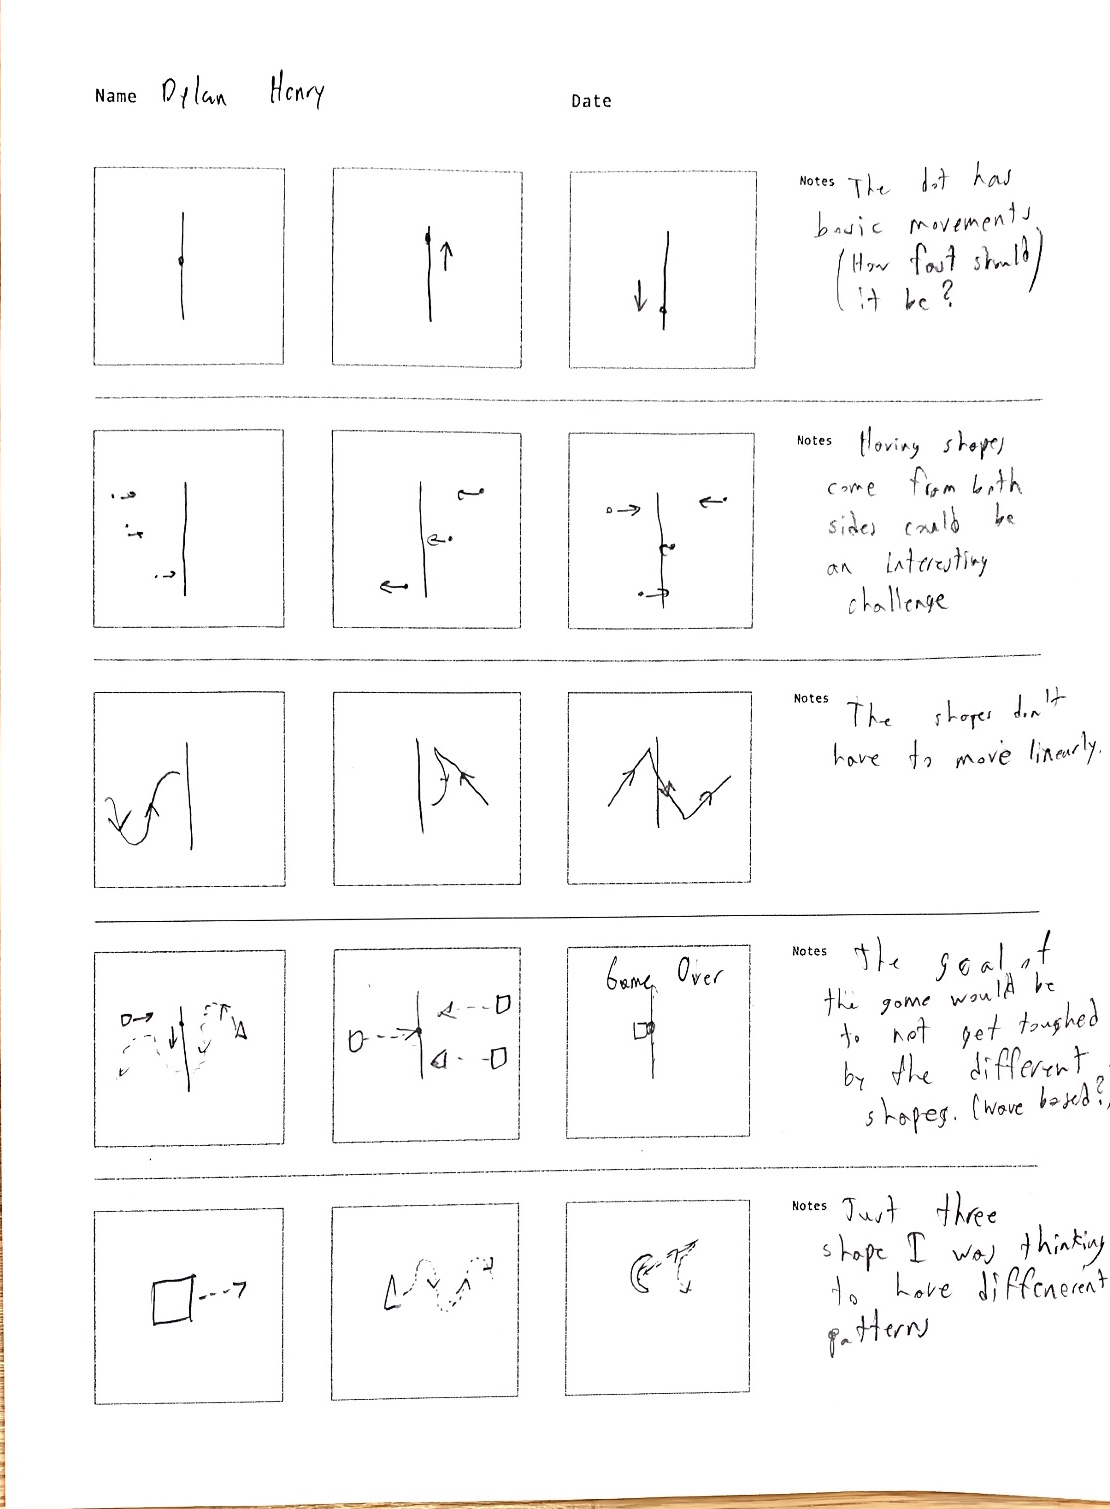 Name Dylan Henry
Date
Notes The dot has
basic movements.
(How fast should)
it be?
Notes Having shapes
come from both
sides could be
an interesting
challenge
Notes The shapes don't
have to move linearly.
Game Over
Notes The goal of
the game would be
to not get toughed
by the different
shapes. (wave based?)
Notes Just three
shape I was thinking
to have diffenerent
patterns